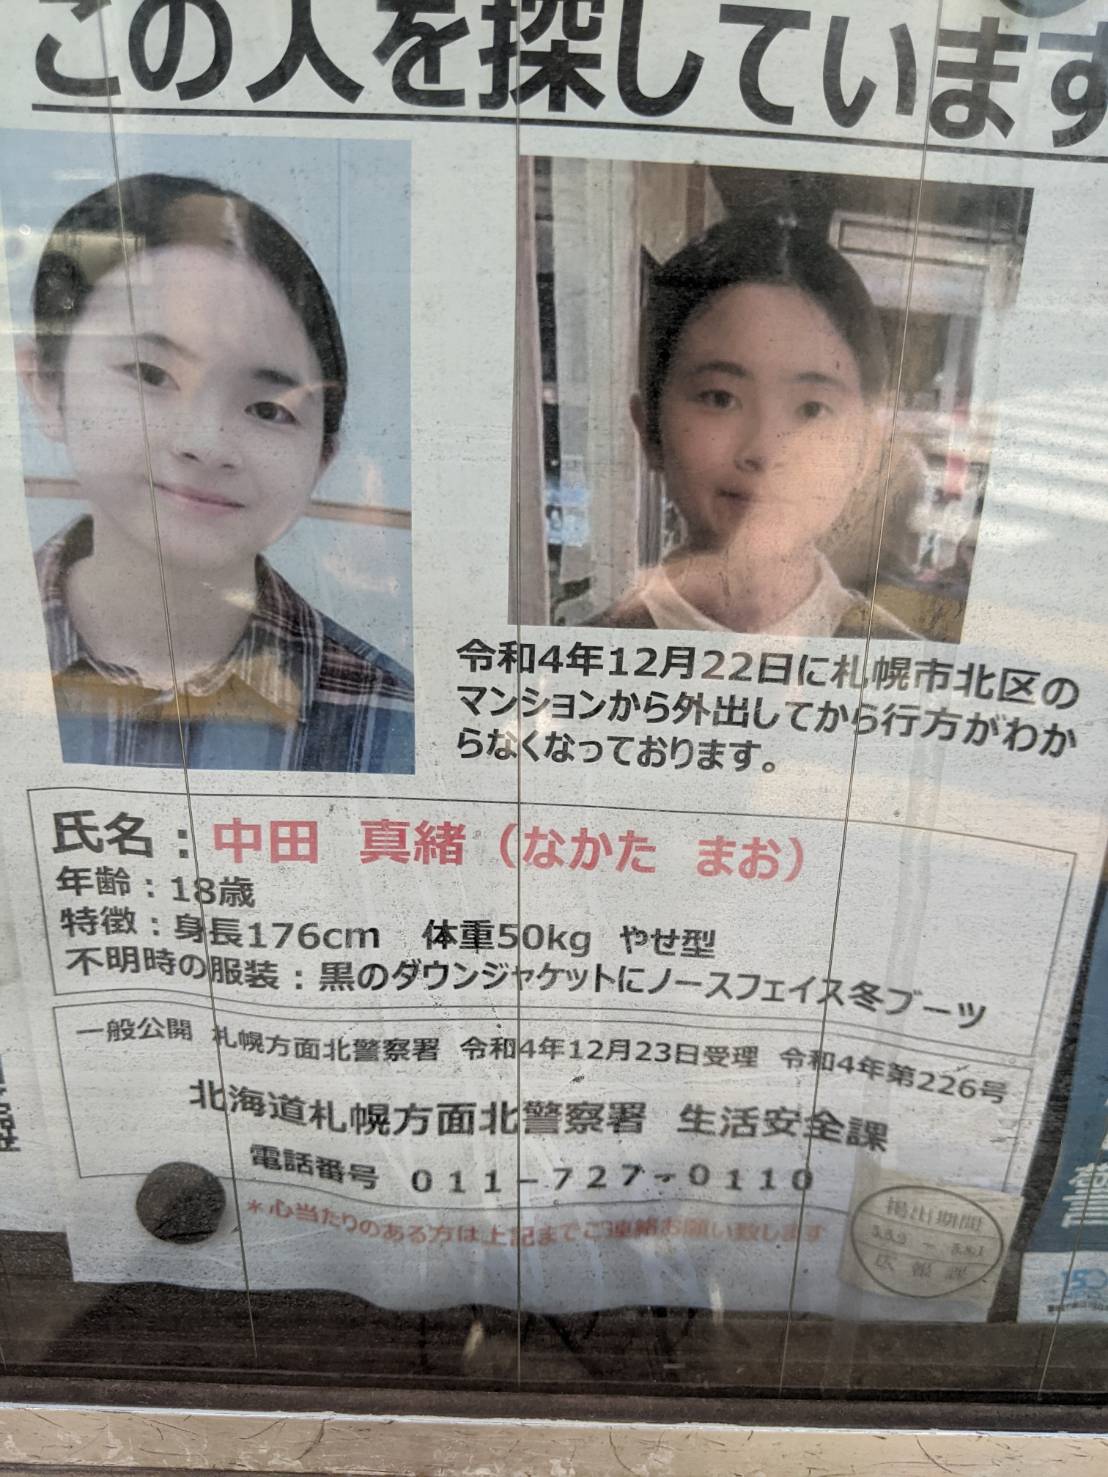 この人を探しています
令和4年12月22日に札幌市北区の
マンションから外出してから行方がわか
らなくなっております。
氏名：中田　真緒（なかた　まお）
年齢：18歳
特徴：身長176cm　体重50kg　やせ型
不明時の服装：黒のダウンジャケットにノースフェイス冬ブーツ
一般公開　札幌方面北警察署　令和4年12月23日受理　令和4年第226号
北海道札幌方面北警察署　生活安全課
電話番号　011－727－0110
＊心当たりのある方は上記までご連絡お願い致します
掲出期間
広報課